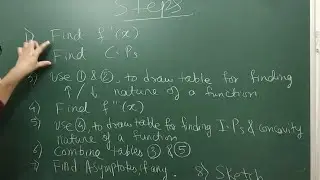 Steps
1) Find f''(x)
Find C.Ps
3) Use ① & ②, to draw table for finding
↑/↓ nature of a function
4) Find f''(x)
5) Use ④, to draw table for finding I.Ps & concavity
nature of a function.
6) Combine tables ③ & ⑤
7) Find Asymptotes, if any. 8) Sketch